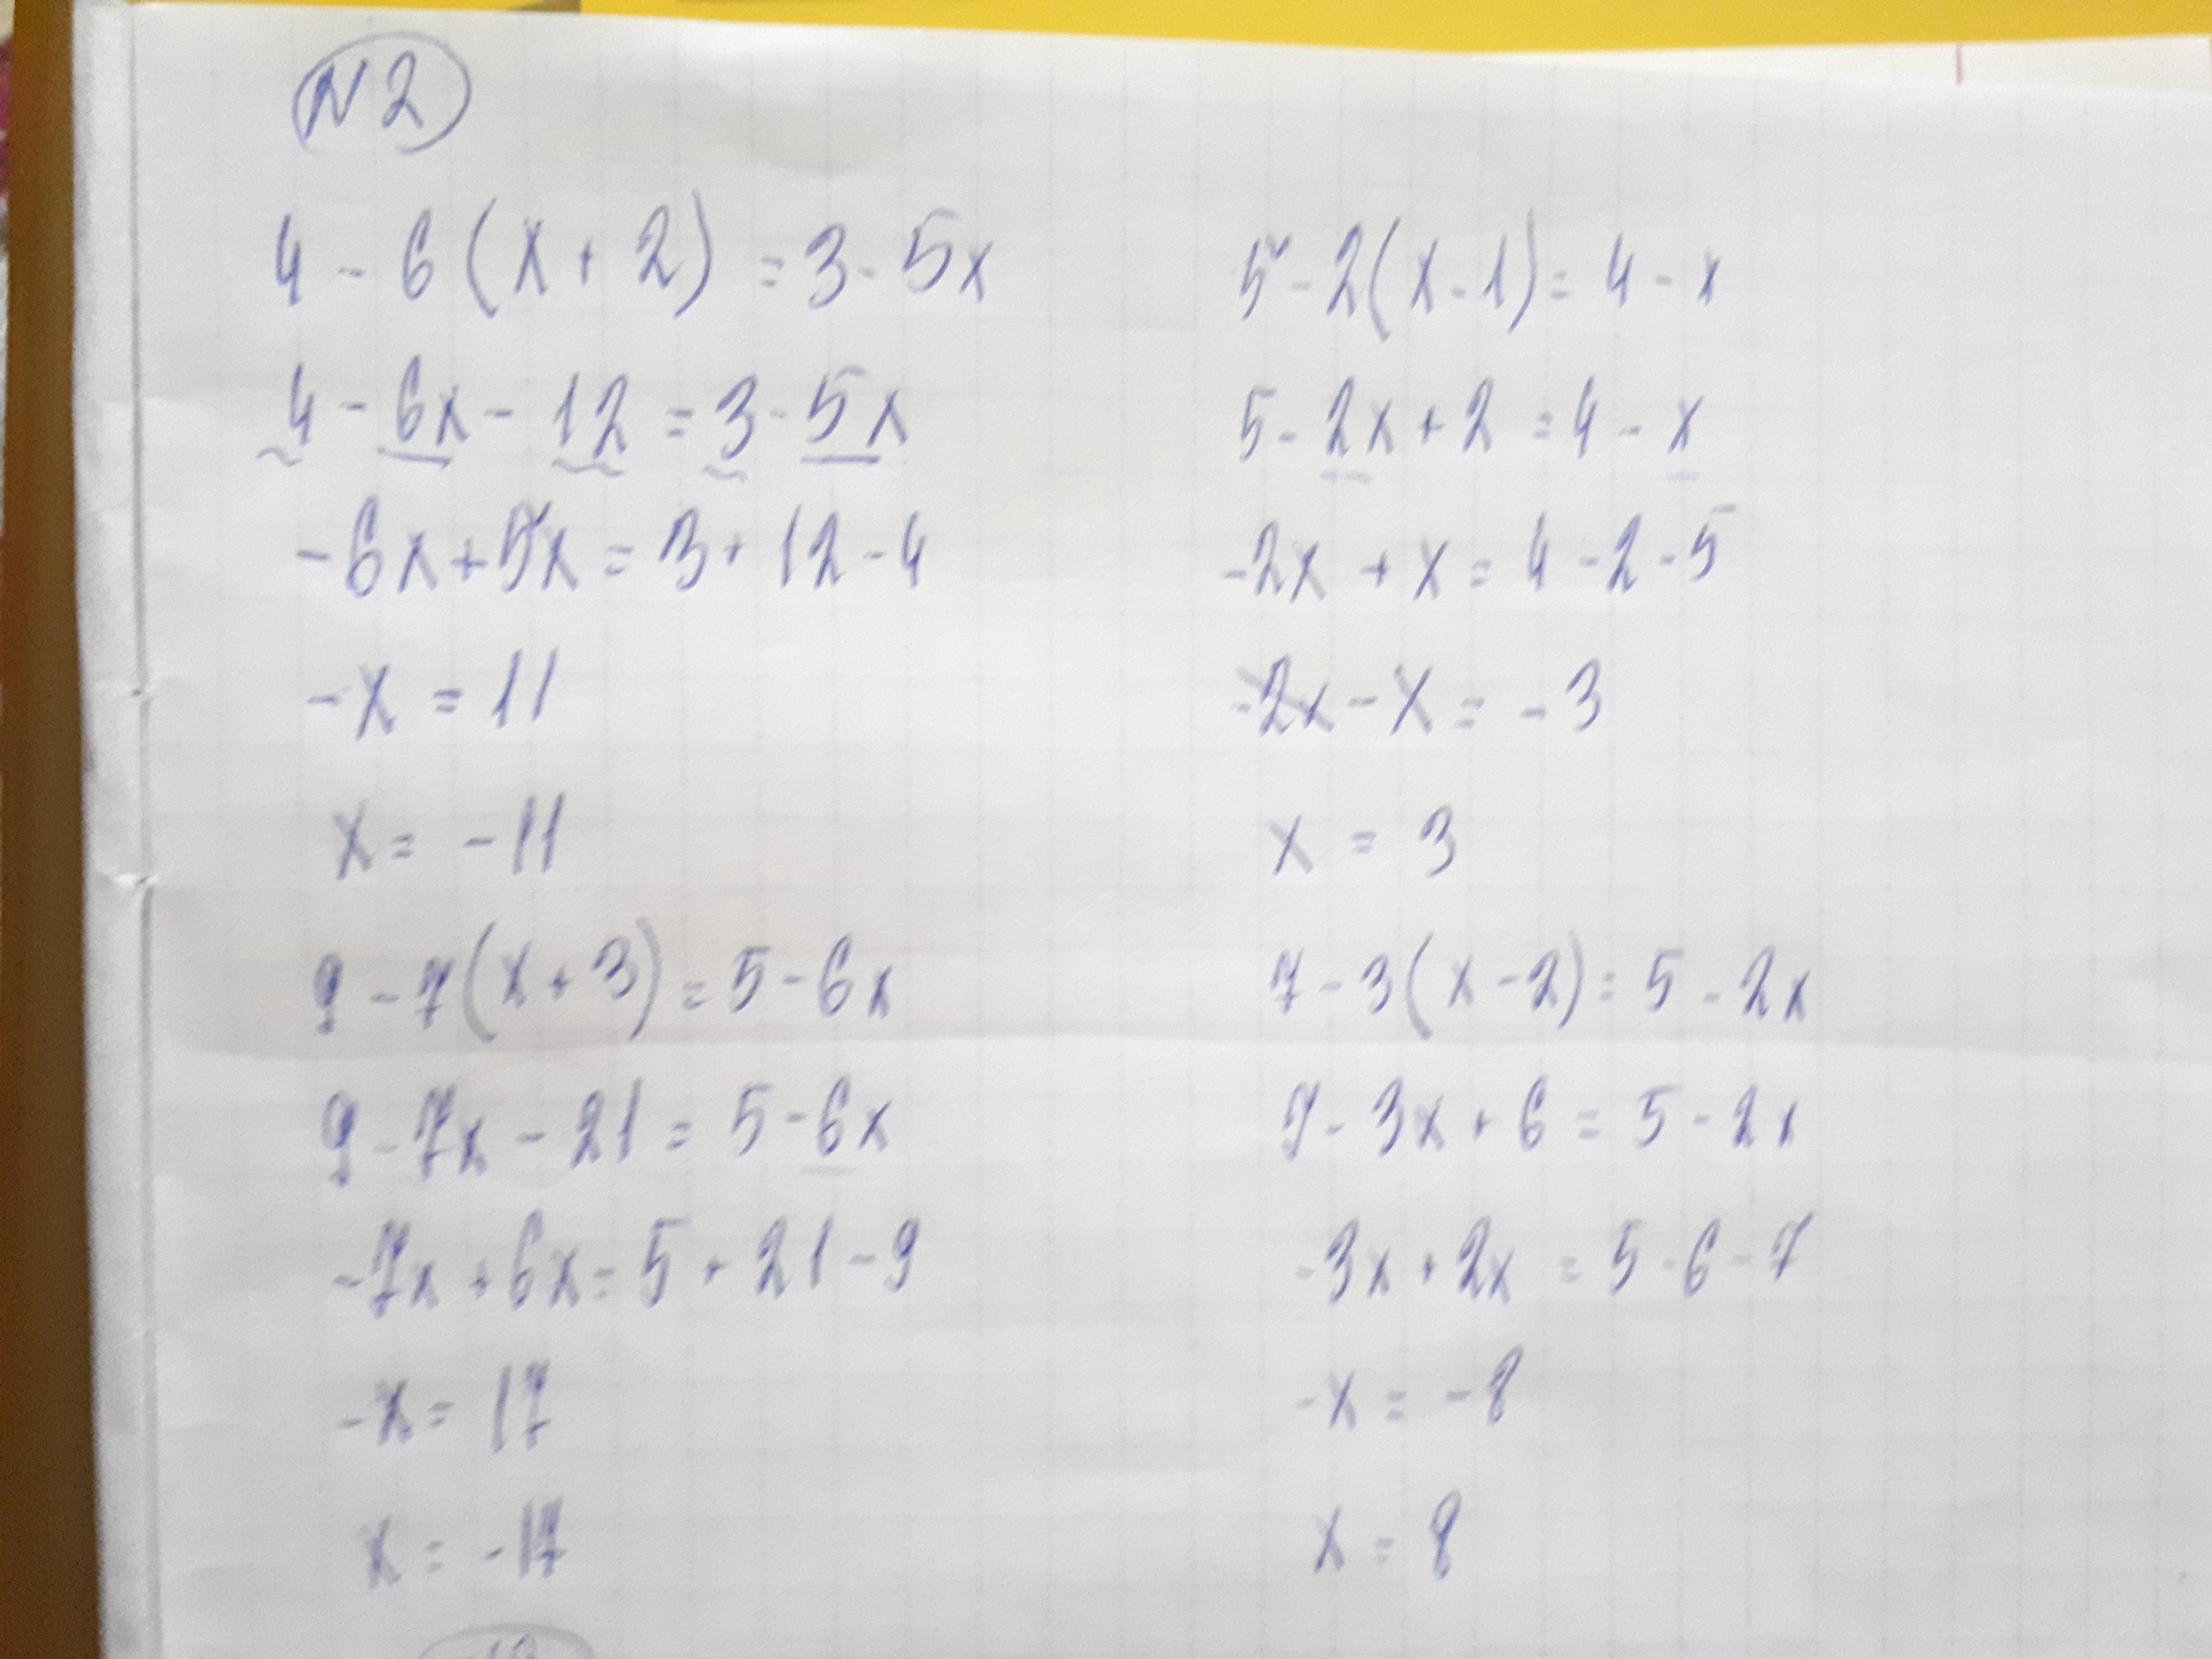 N2
4 - 6(x + 2) = 3 - 5x
4 - 6x - 12 = 3 - 5x
-6x + 5x = 3 + 12 - 4
-x = 11
x = -11
9 - 7(x + 3) = 5 - 6x
9 - 7x - 21 = 5 - 6x
-7x + 6x = 5 + 21 - 9
-x = 17
x = -17
5 - 2(x - 1) = 4 - x
5 - 2x + 2 = 4 - x
-2x + x = 4 - 2 - 5
-x = -3
x = 3
7 - 3(x - 2) = 5 - 2x
7 - 3x + 6 = 5 - 2x
-3x + 2x = 5 - 6 - 7
-x = -8
x = 8